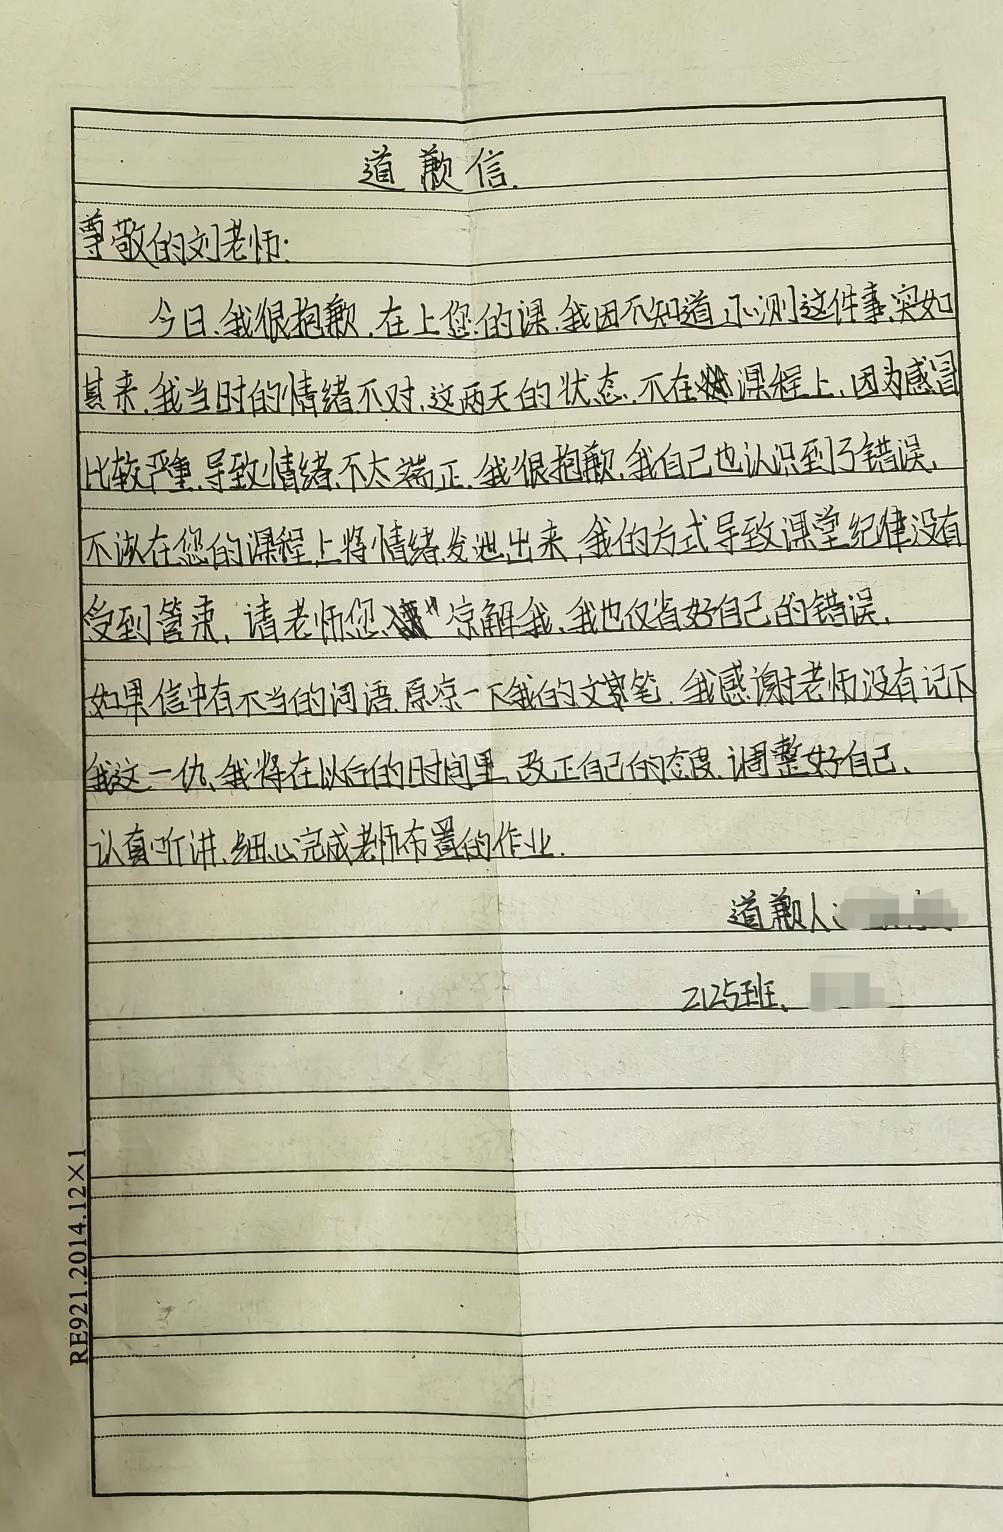 道歉信.
尊敬的刘老师:
今日,我很抱歉,在上您的课,我因不知道,小测这件事,突如
其来,我当时的情绪不对,这两天的状态,不在课程上,因为感冒
比较严重,导致情绪,不太端正,我很抱歉,我自己也认识到了错误,
不该在您的课程上将情绪发泄出来,我的方式导致课堂纪律没有
受到管束,请老师您"凉解我,我也仅省好自己的错误,
如果信中有不当的词语,原凉一下我的文笔,我感谢老师没有记下
我这一仇,我将在以后的时间里,改正自己的态度,调整好自己,
认真听讲,细心完成老师布置的作业.
道歉人:
2125班,
RE921.2014.12×1